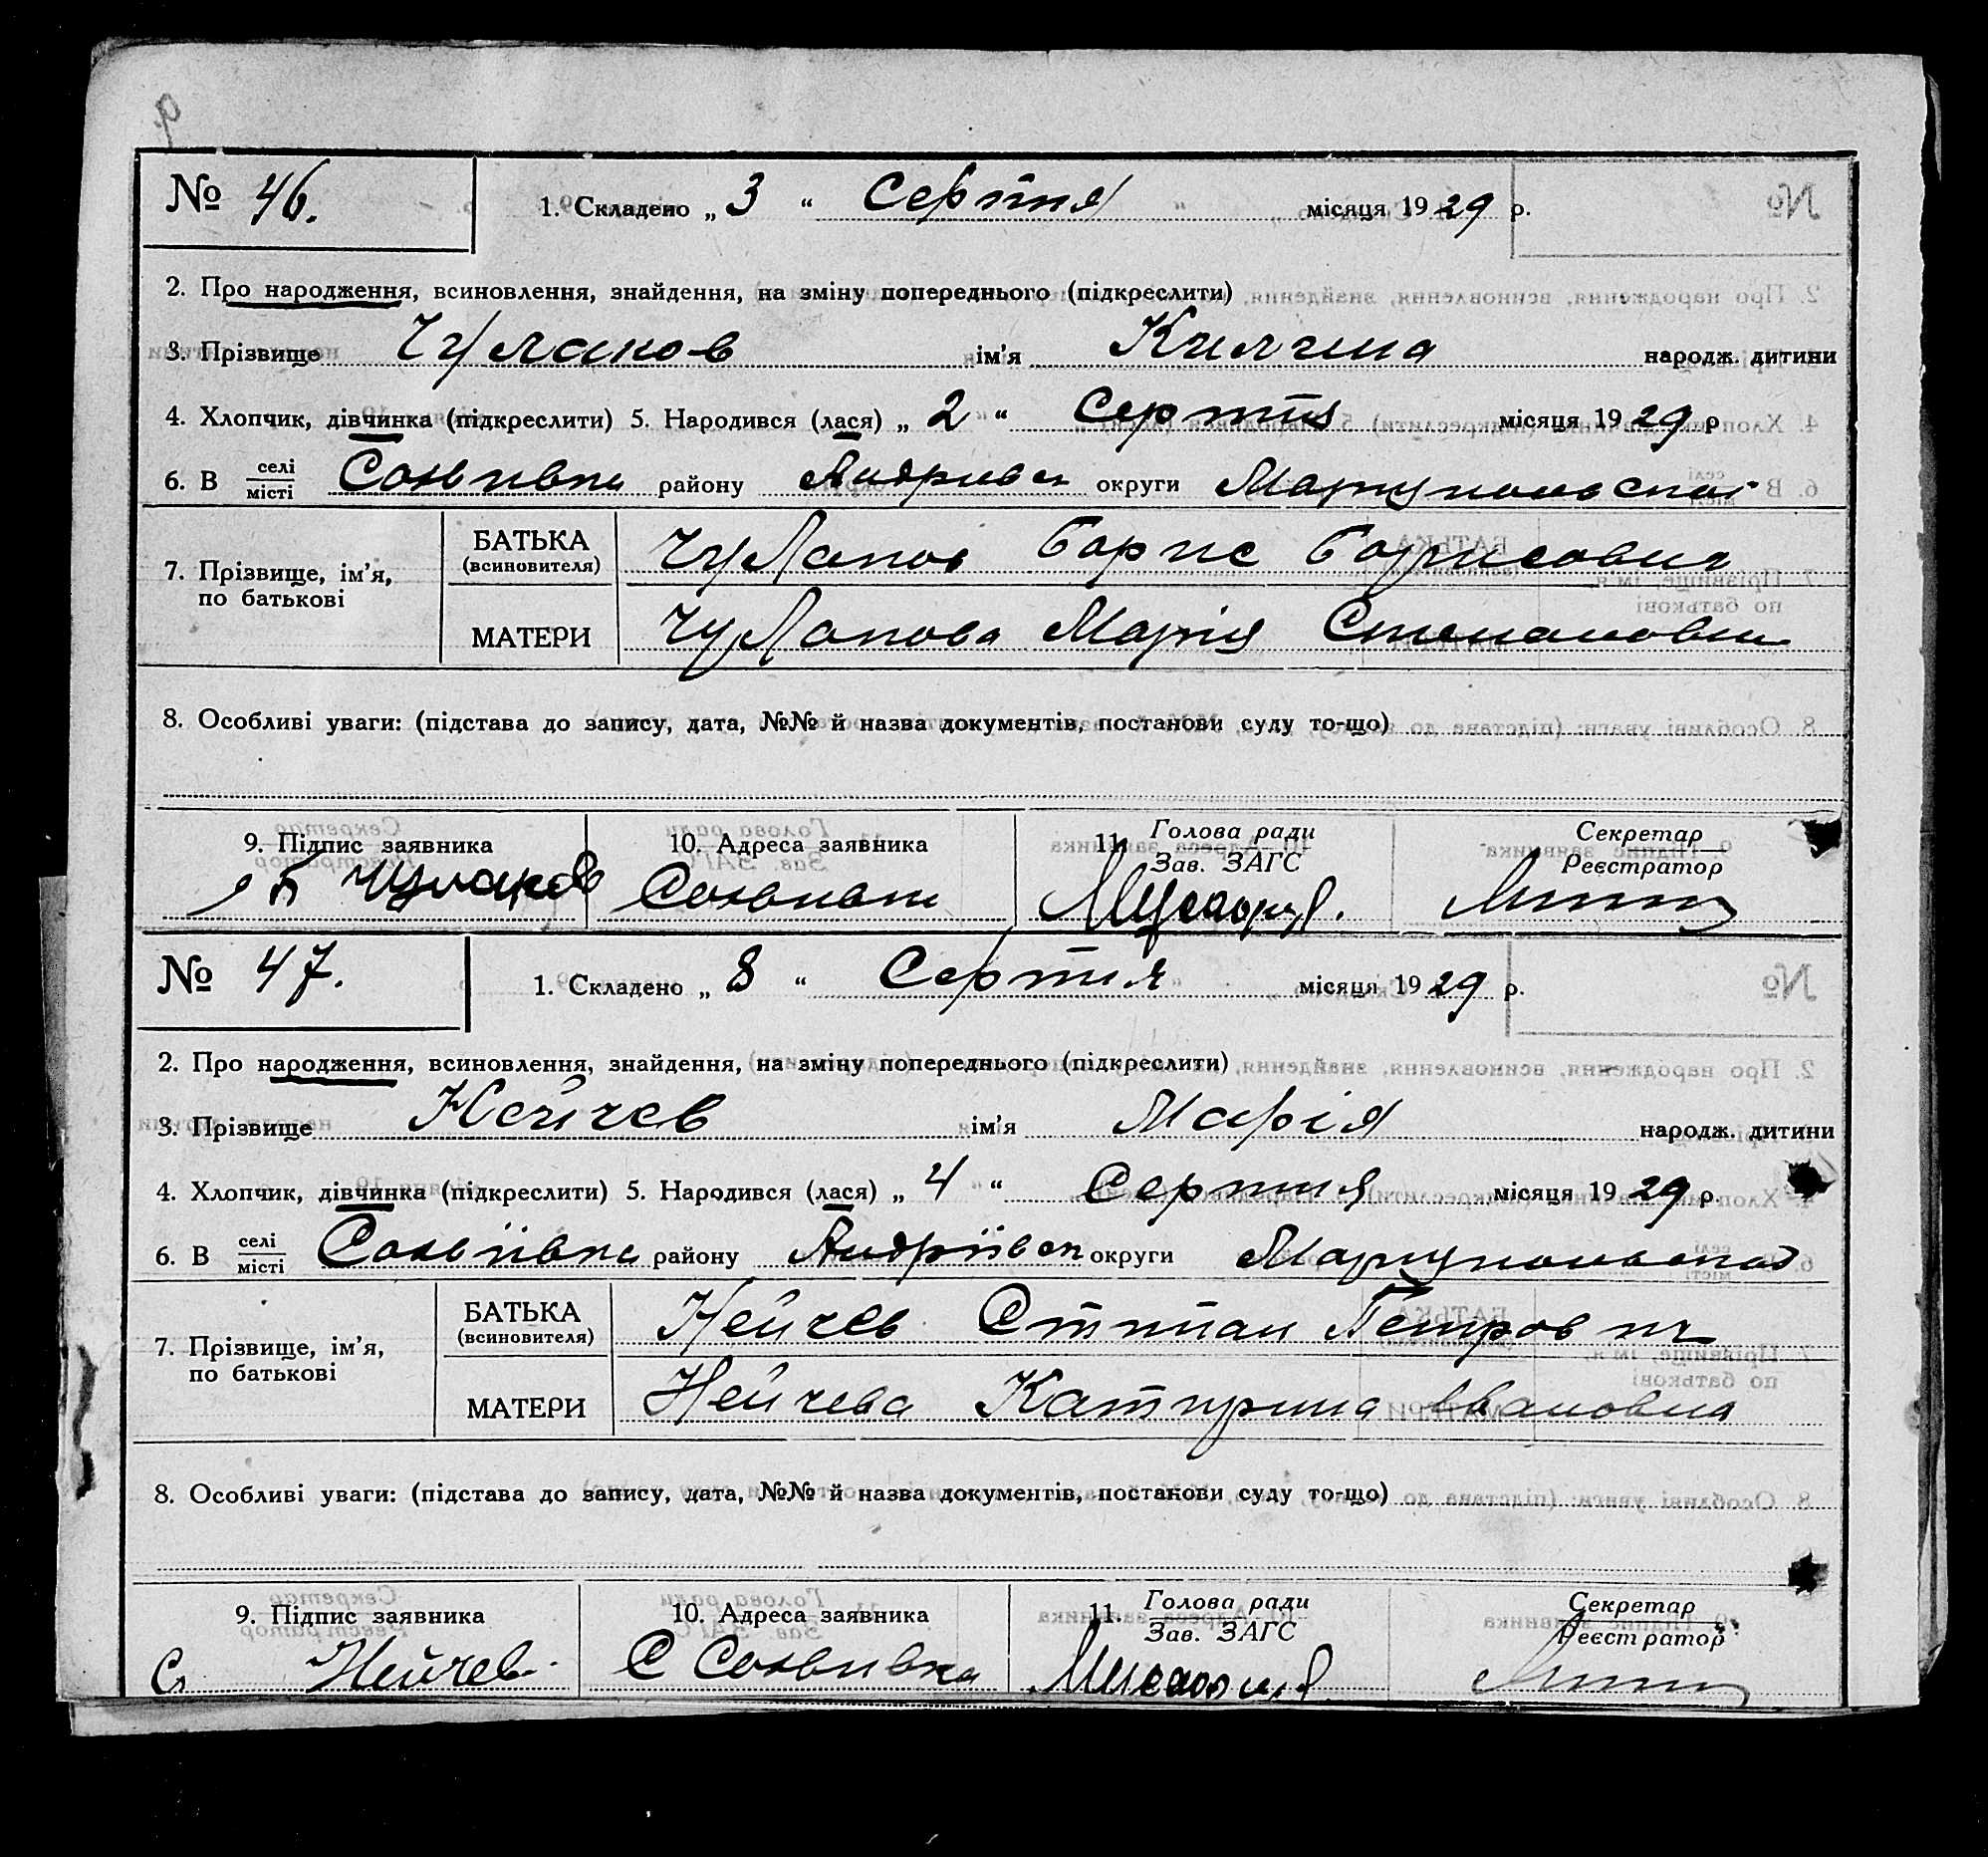 № 46.
1. Складено „ 3 “ Серпня місяця 1929 р.
2. Про народження, всиновлення, знайдення, на зміну попереднього (підкреслити)
3. Прізвище Чулаков ім’я народж. дитини
4. Хлопчик, дівчинка (підкреслити) 5. Народився (лася) „ 2 “ Серпня місяця 1929 р
6. В селі місті району округи Маріупольської
7. Прізвище, ім’я, по батькові
БАТЬКА (всиновителя) Чулаков Борис Борисович
МАТЕРИ Чулакова Марія Степановна
8. Особливі уваги: (підстава до запису, дата, №№ й назва документів, постанови суду то-що)
9. Підпис заявника 10. Адреса заявника 11. Голова ради Зав. ЗАГС Секретар Реєстратор
Чулаков
№ 47.
1. Складено „ 8 “ Серпня місяця 1929 р.
2. Про народження, всиновлення, знайдення, на зміну попереднього (підкреслити)
3. Прізвище Нейчев ім’я Марія народж. дитини
4. Хлопчик, дівчинка (підкреслити) 5. Народився (лася) „ 4 “ Серпня місяця 1929 р.
6. В селі місті району округи
7. Прізвище, ім’я, по батькові
БАТЬКА (всиновителя) Нейчев Степан Петрович
МАТЕРИ Нейчева Катирина Івановна
8. Особливі уваги: (підстава до запису, дата, №№ й назва документів, постанови суду то-що)
9. Підпис заявника 10. Адреса заявника 11. Голова ради Зав. ЗАГС Секретар Реєстратор
Нейчев